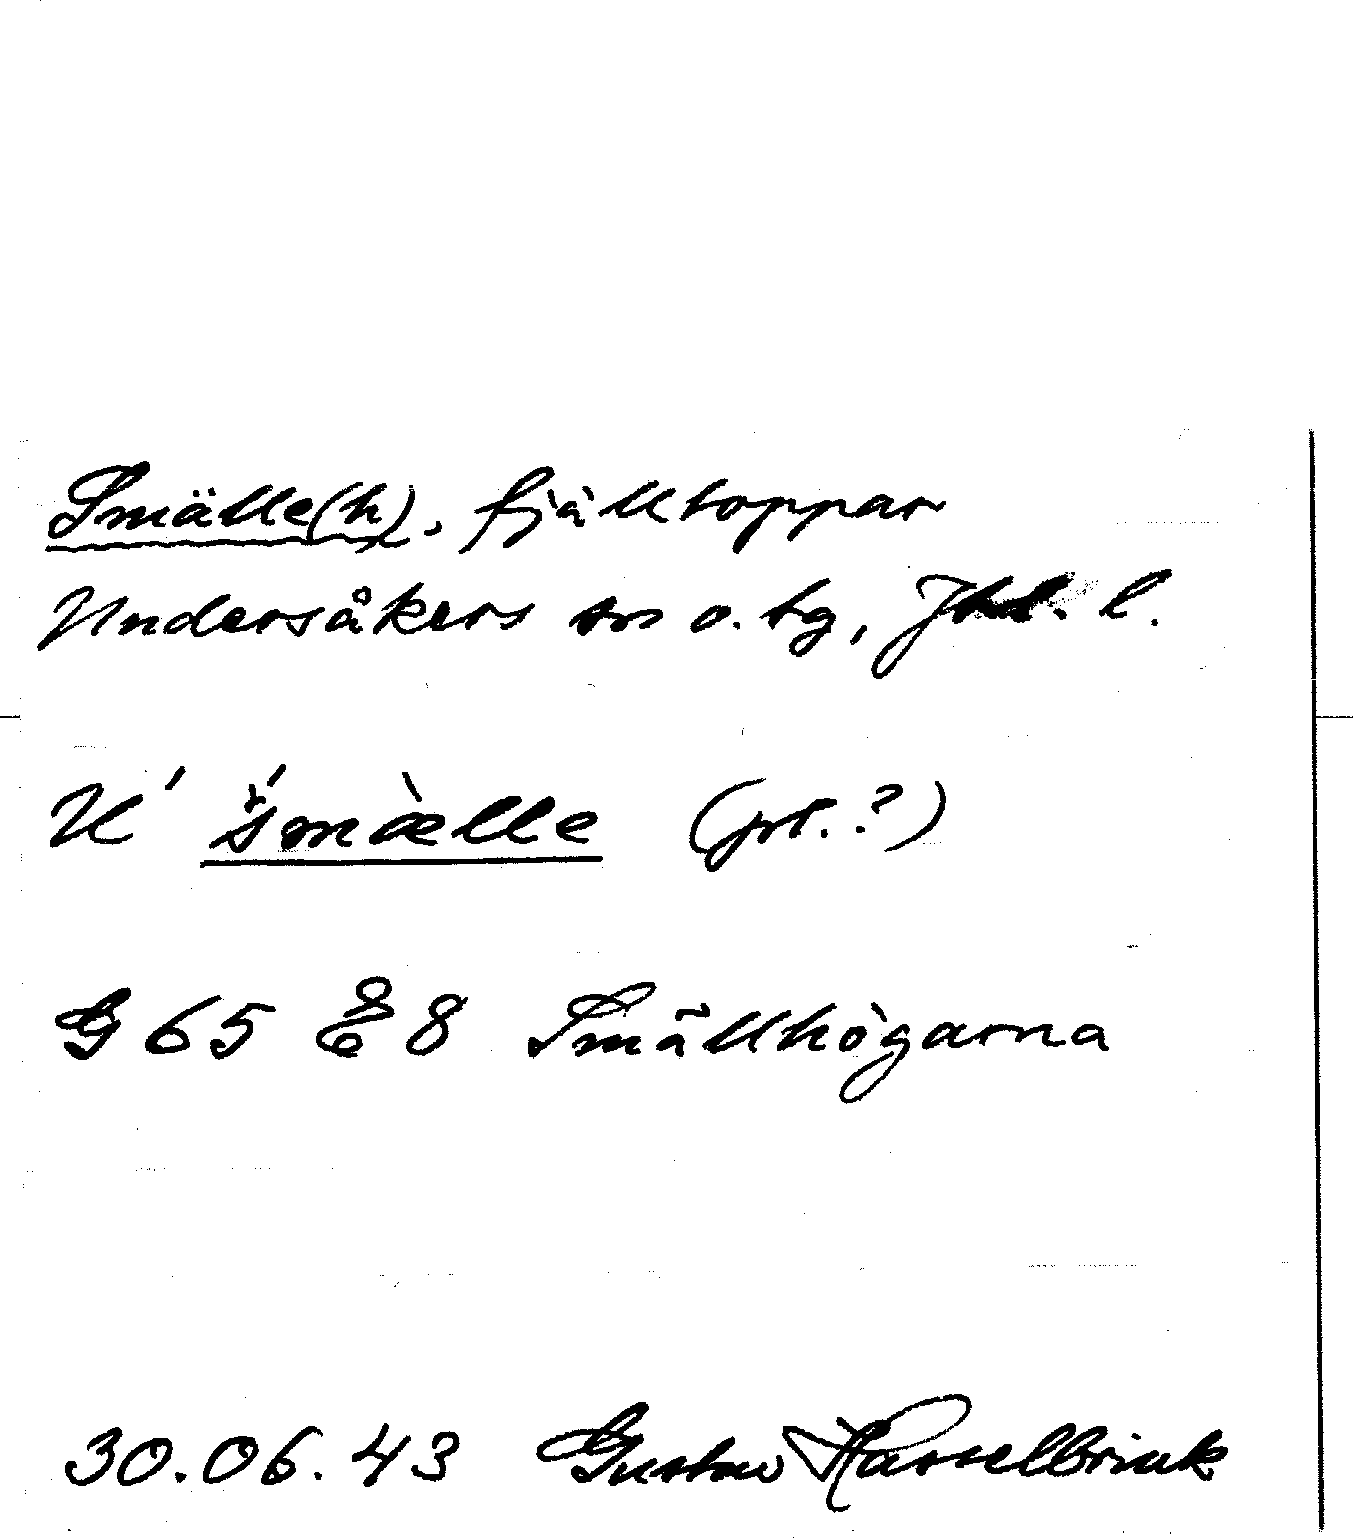 Smälle(h), fjälltoppar
Undersåkers sn o. tg, Jtl. l.
U' šmæ̀lle (pl.?)
G 65 E 8 Smällhögarna
30.06.43 Gustav Hasselbrink